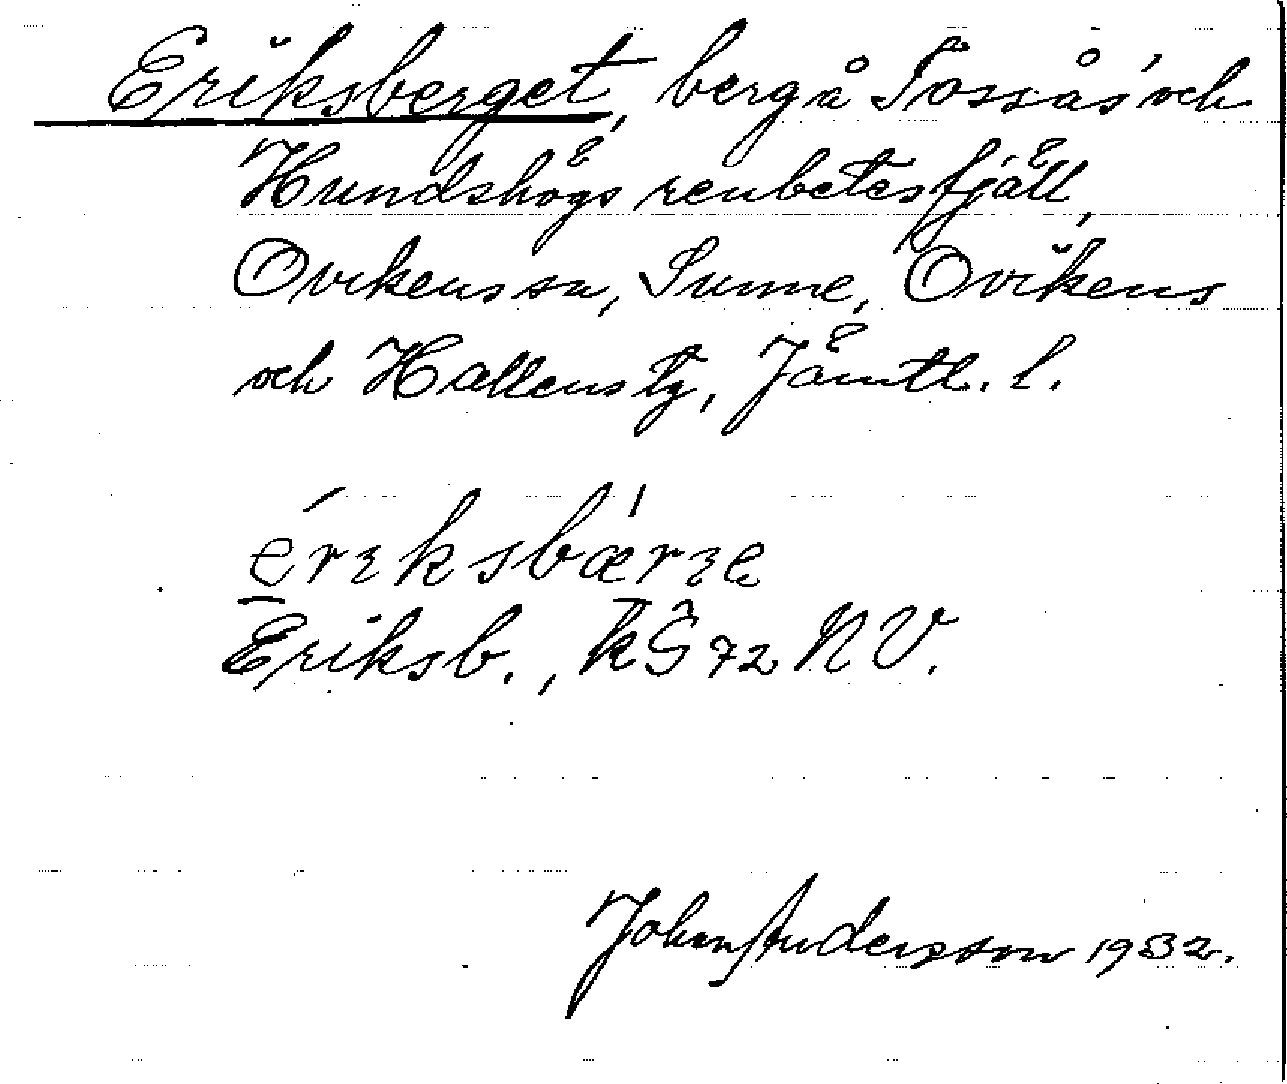 Eriksberget, berg å Tossås och
Hundshögs renbetesfjäll,
Ovikens sn, Sunne, Ovikens
och Hallens tg, Jämtl. l.
ériksbærze
Eriksb., k S 72 NV.
Johan Andersson 1932.